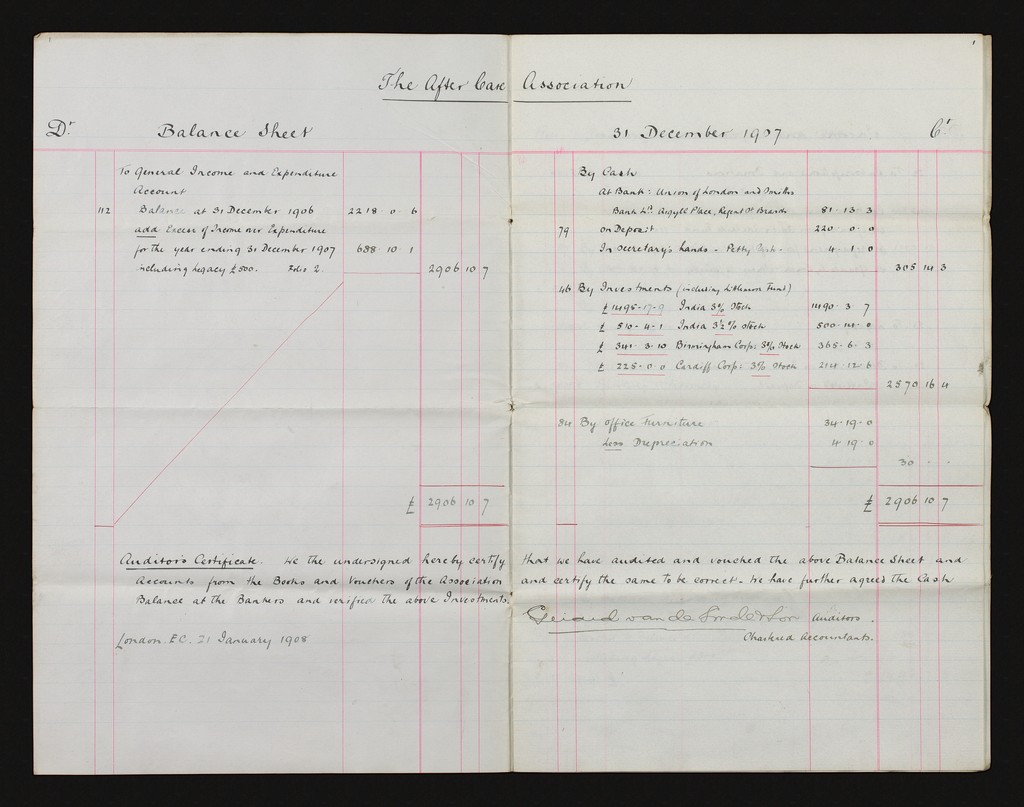 The After Care Association
Dr Balance Sheet 31 December 1907 Cr
To General Income and Expenditure
Account
112 Balance at 31 December 1906 2218 - 0 - 6
add Excess of Income over Expenditure
for the year ending 31 December 1907 688 - 10 - 1
including Legacy £500. Folio 2. 2906 10 7
£ 2906 10 7
By Cash
At Bank: Union of London and Smiths
Bank Ltd. Argyll Place, Regent St Branch 81 - 13 - 3
79 on Deposit 220 - 0 - 0
In Secretary's hands - Petty Cash - 4 - 1 - 0
305 14 3
46 By Investments (including Fund)
£ 1495-17-9 India 3% Stock 1490 - 3 - 7
£ 510 - 4 - 1 India 3½% Stock 500 - 14 - 0
£ 341 - 3 - 10 Birmingham Corp: 3% Stock 365 - 6 - 3
£ 225 - 0 - 0 Cardiff Corp: 3% Stock 214 - 12 - 6
2570 16 4
84 By Office Furniture 34 - 19 - 0
Less Depreciation 4 19 - 0
30 - -
£ 2906 10 7
Auditors Certificate. We the undersigned hereby certify that we have audited and vouched the above Balance Sheet and
Accounts from the Books and Vouchers of the Association and certify the same to be correct - We have further agreed the Cash
Balance at the Bankers and verified the above Investments.
Gerard van de Auditors.
Chartered Accountants.
London. E.C. 21 January 1908